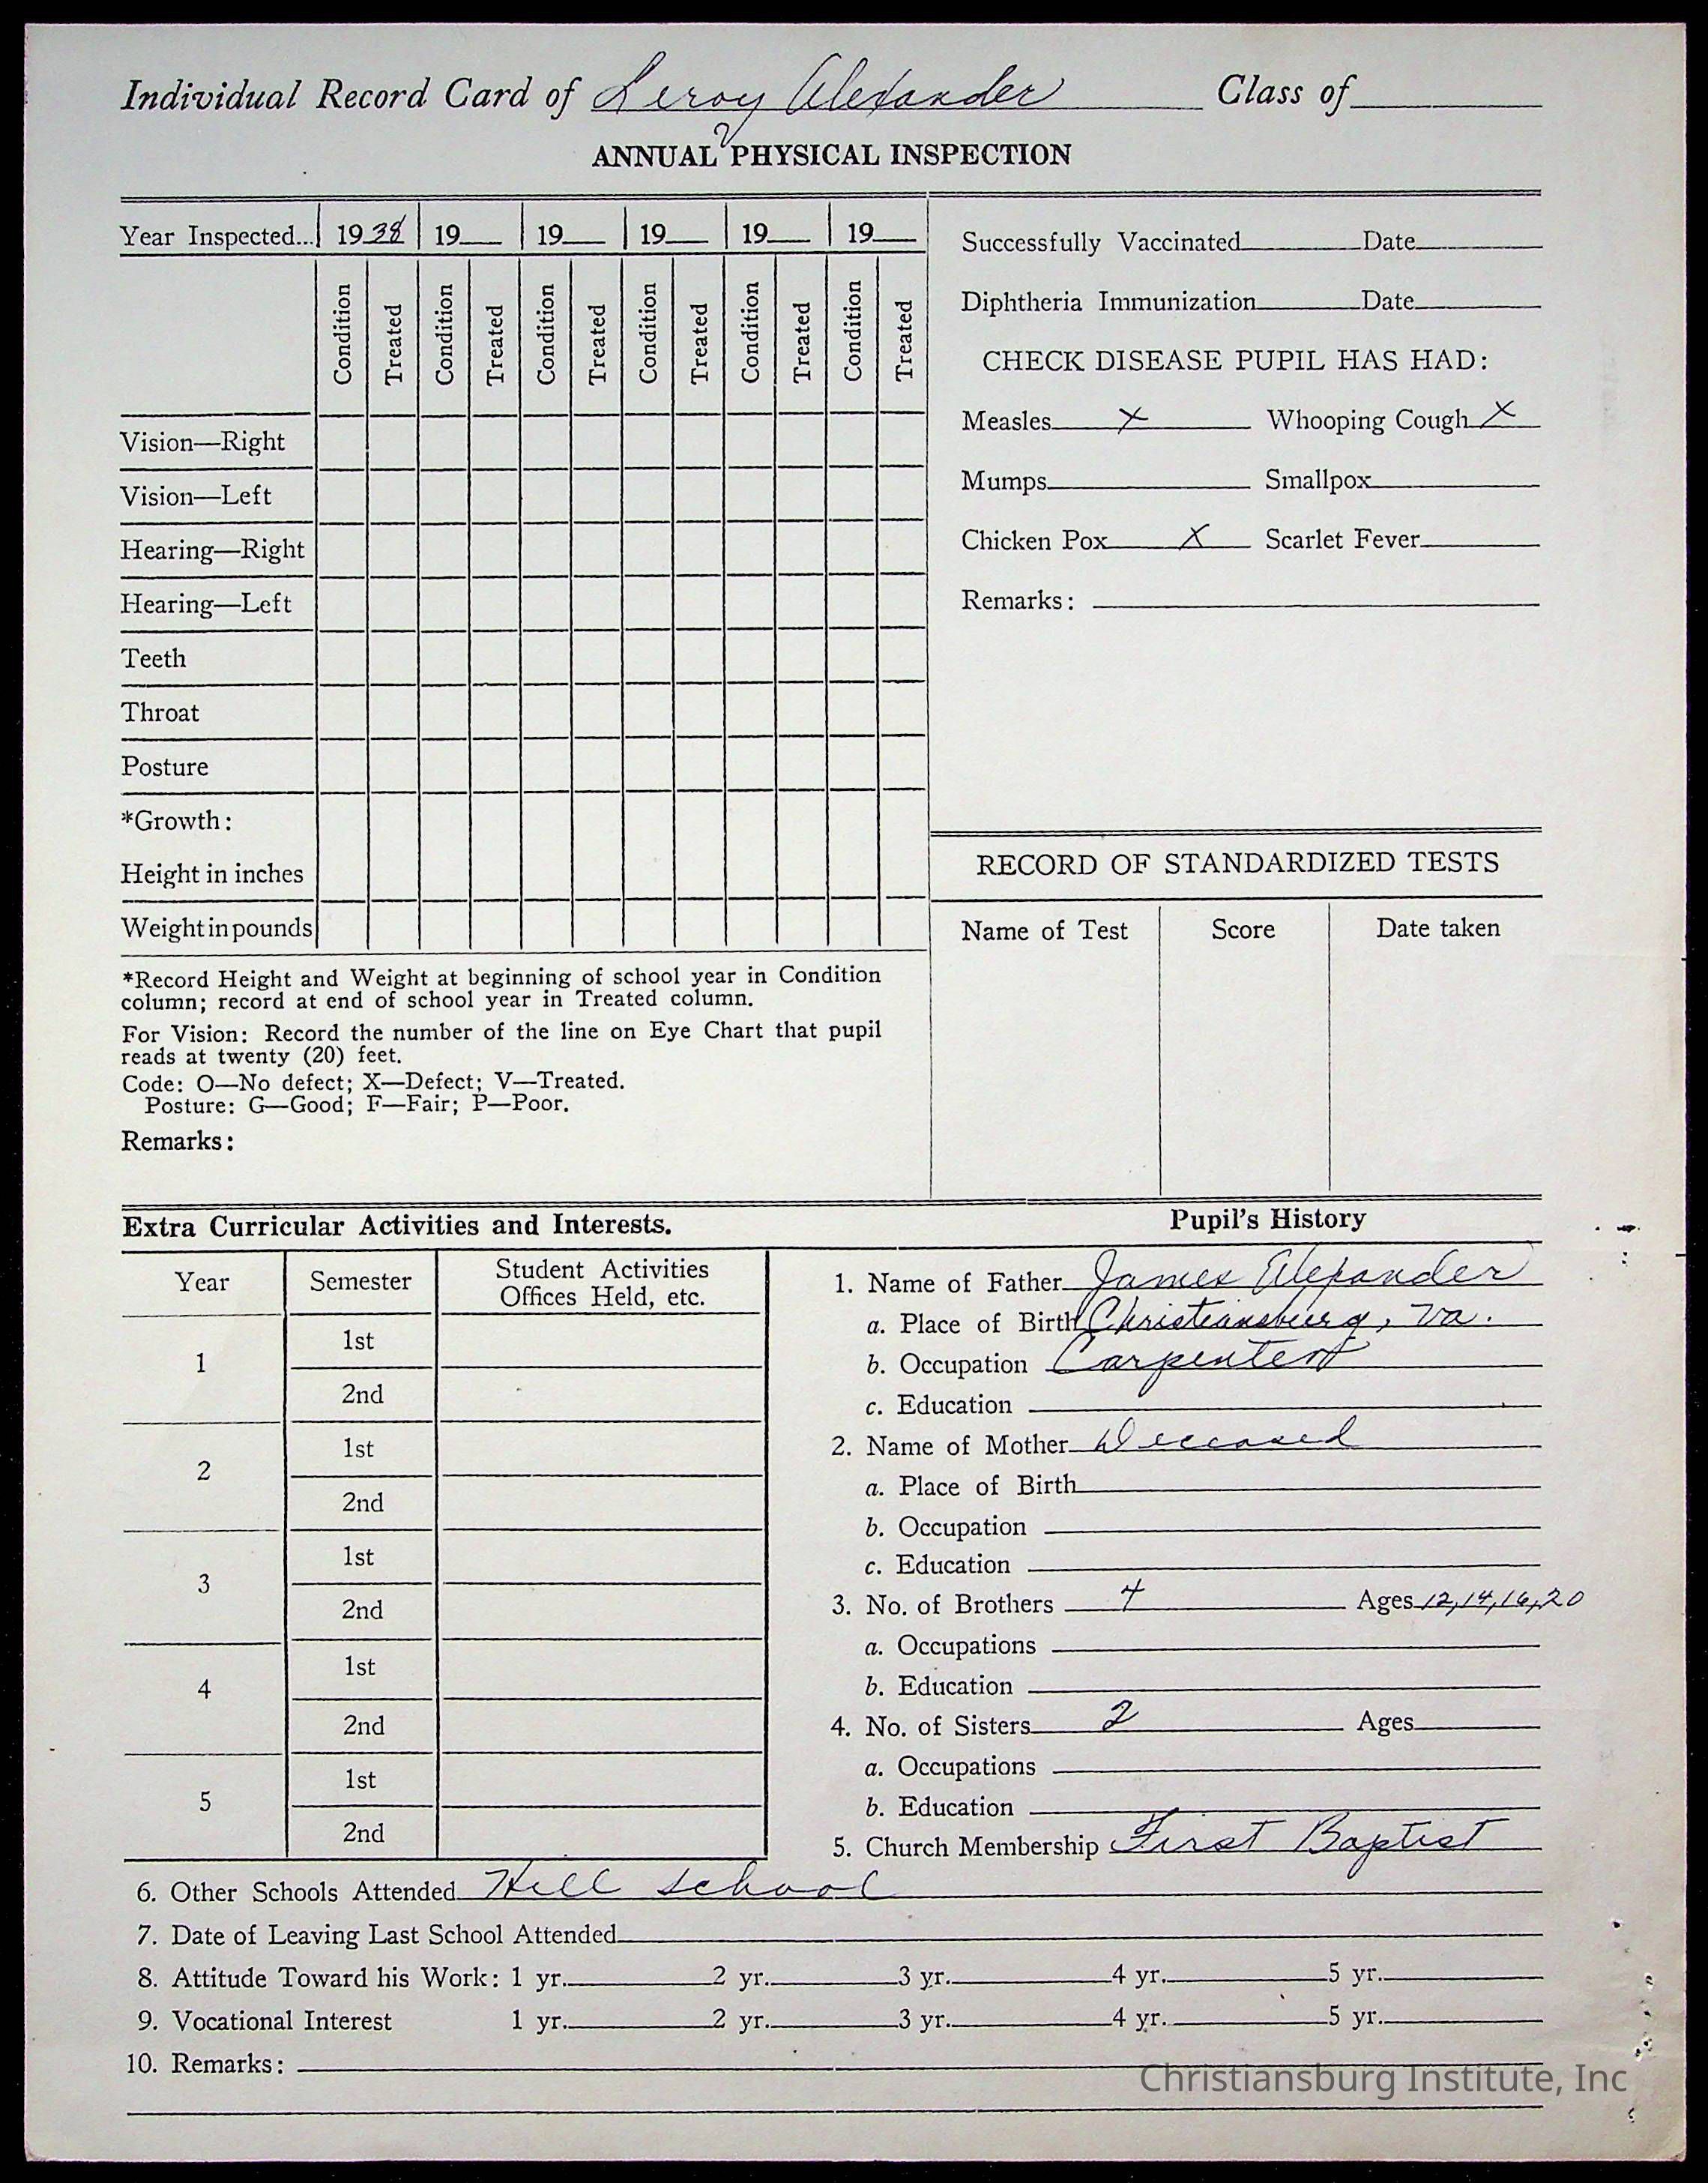 Individual Record Card of Leroy Alexander Class of
ANNUAL PHYSICAL INSPECTION
Year Inspected... 1938 19 19 19 19 19
Condition Treated Condition Treated Condition Treated Condition Treated Condition Treated Condition Treated
Vision—Right
Vision—Left
Hearing—Right
Hearing—Left
Teeth
Throat
Posture
*Growth:
Height in inches
Weight in pounds
*Record Height and Weight at beginning of school year in Condition
column; record at end of school year in Treated column.
For Vision: Record the number of the line on Eye Chart that pupil
reads at twenty (20) feet.
Code: O—No defect; X—Defect; V—Treated.
Posture: G—Good; F—Fair; P—Poor.
Remarks:
Successfully Vaccinated Date
Diphtheria Immunization Date
CHECK DISEASE PUPIL HAS HAD:
Measles X Whooping Cough X
Mumps Smallpox
Chicken Pox X Scarlet Fever
Remarks:
RECORD OF STANDARDIZED TESTS
Name of Test Score Date taken
Extra Curricular Activities and Interests.
Year Semester Student Activities
Offices Held, etc.
1 1st
2nd
2 1st
2nd
3 1st
2nd
4 1st
2nd
5 1st
2nd
Pupil's History
1. Name of Father James Alexander
a. Place of Birth Christiansburg, Va.
b. Occupation Carpenter
c. Education
2. Name of Mother Deceased
a. Place of Birth
b. Occupation
c. Education
3. No. of Brothers 4 Ages 12,14,16,20
a. Occupations
b. Education
4. No. of Sisters 2 Ages
a. Occupations
b. Education
5. Church Membership First Baptist
6. Other Schools Attended Hill School
7. Date of Leaving Last School Attended
8. Attitude Toward his Work: 1 yr. 2 yr. 3 yr. 4 yr. 5 yr.
9. Vocational Interest 1 yr. 2 yr. 3 yr. 4 yr. 5 yr.
10. Remarks:
Christiansburg Institute, Inc